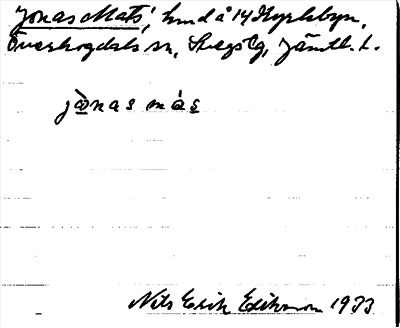 'Jonas Mats', hmd å 14 Kyrkbyn,
Överhogdals sn, Svegs tg, Jämtl. l.
jɷ̀nas màs
Nils Erik Eriksson 1933